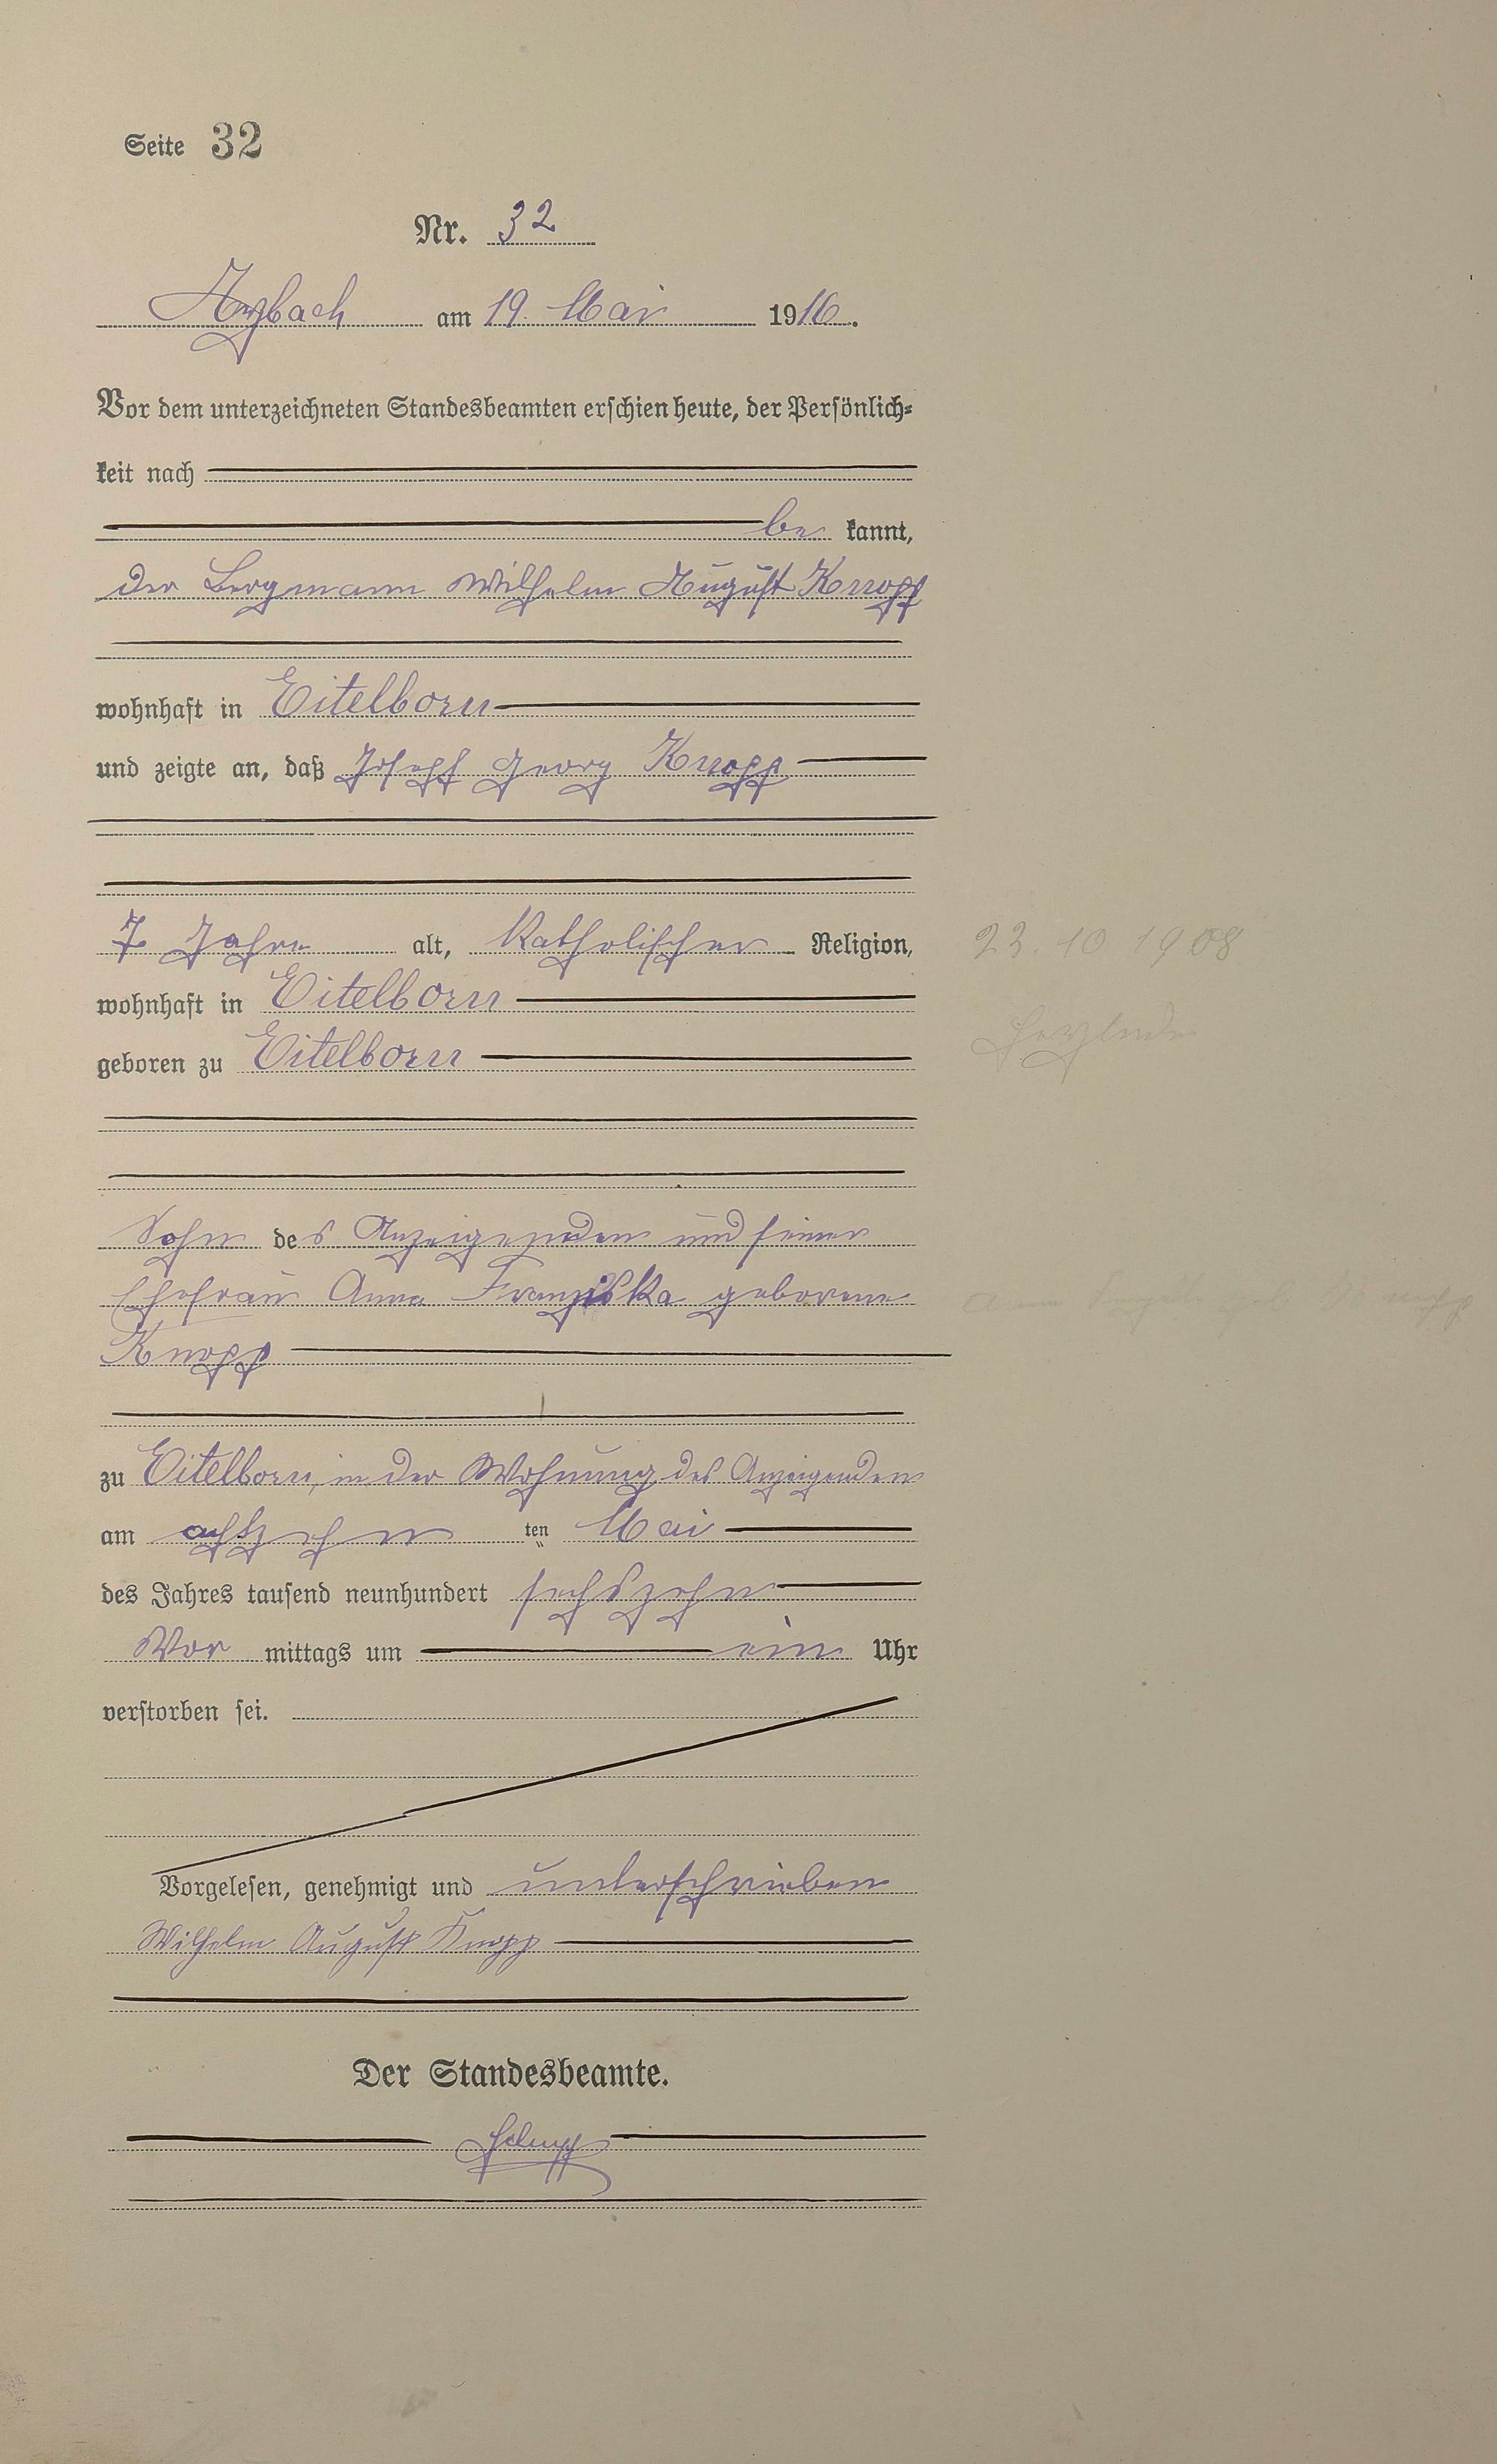 Seite 32
Nr. 32
Arzbach am 19. Mai 1916.
Vor dem unterzeichneten Standesbeamten erschien heute, der Persönlich-
keit nach
be kannt,
der Bergmann Wilhelm August Knopp
wohnhaft in Eitelborn
und zeigte an, daß Joseph Georg Knopp
7 Jahre alt, katholischer Religion, 23. 10 1908
wohnhaft in Eitelborn
geboren zu Eitelborn
Sohn des Anzeigenden und seiner
Ehefrau Anna Franziska geborene
Knopp
zu Eitelborn, in der Wohnung des Anzeigenden
am achtzehn ten Mai
des Jahres tausend neunhundert sechszehn
Vor mittags um ein Uhr
verstorben sei.
Vorgelesen, genehmigt und unterschrieben
Wilhelm August Knopp
Der Standesbeamte.